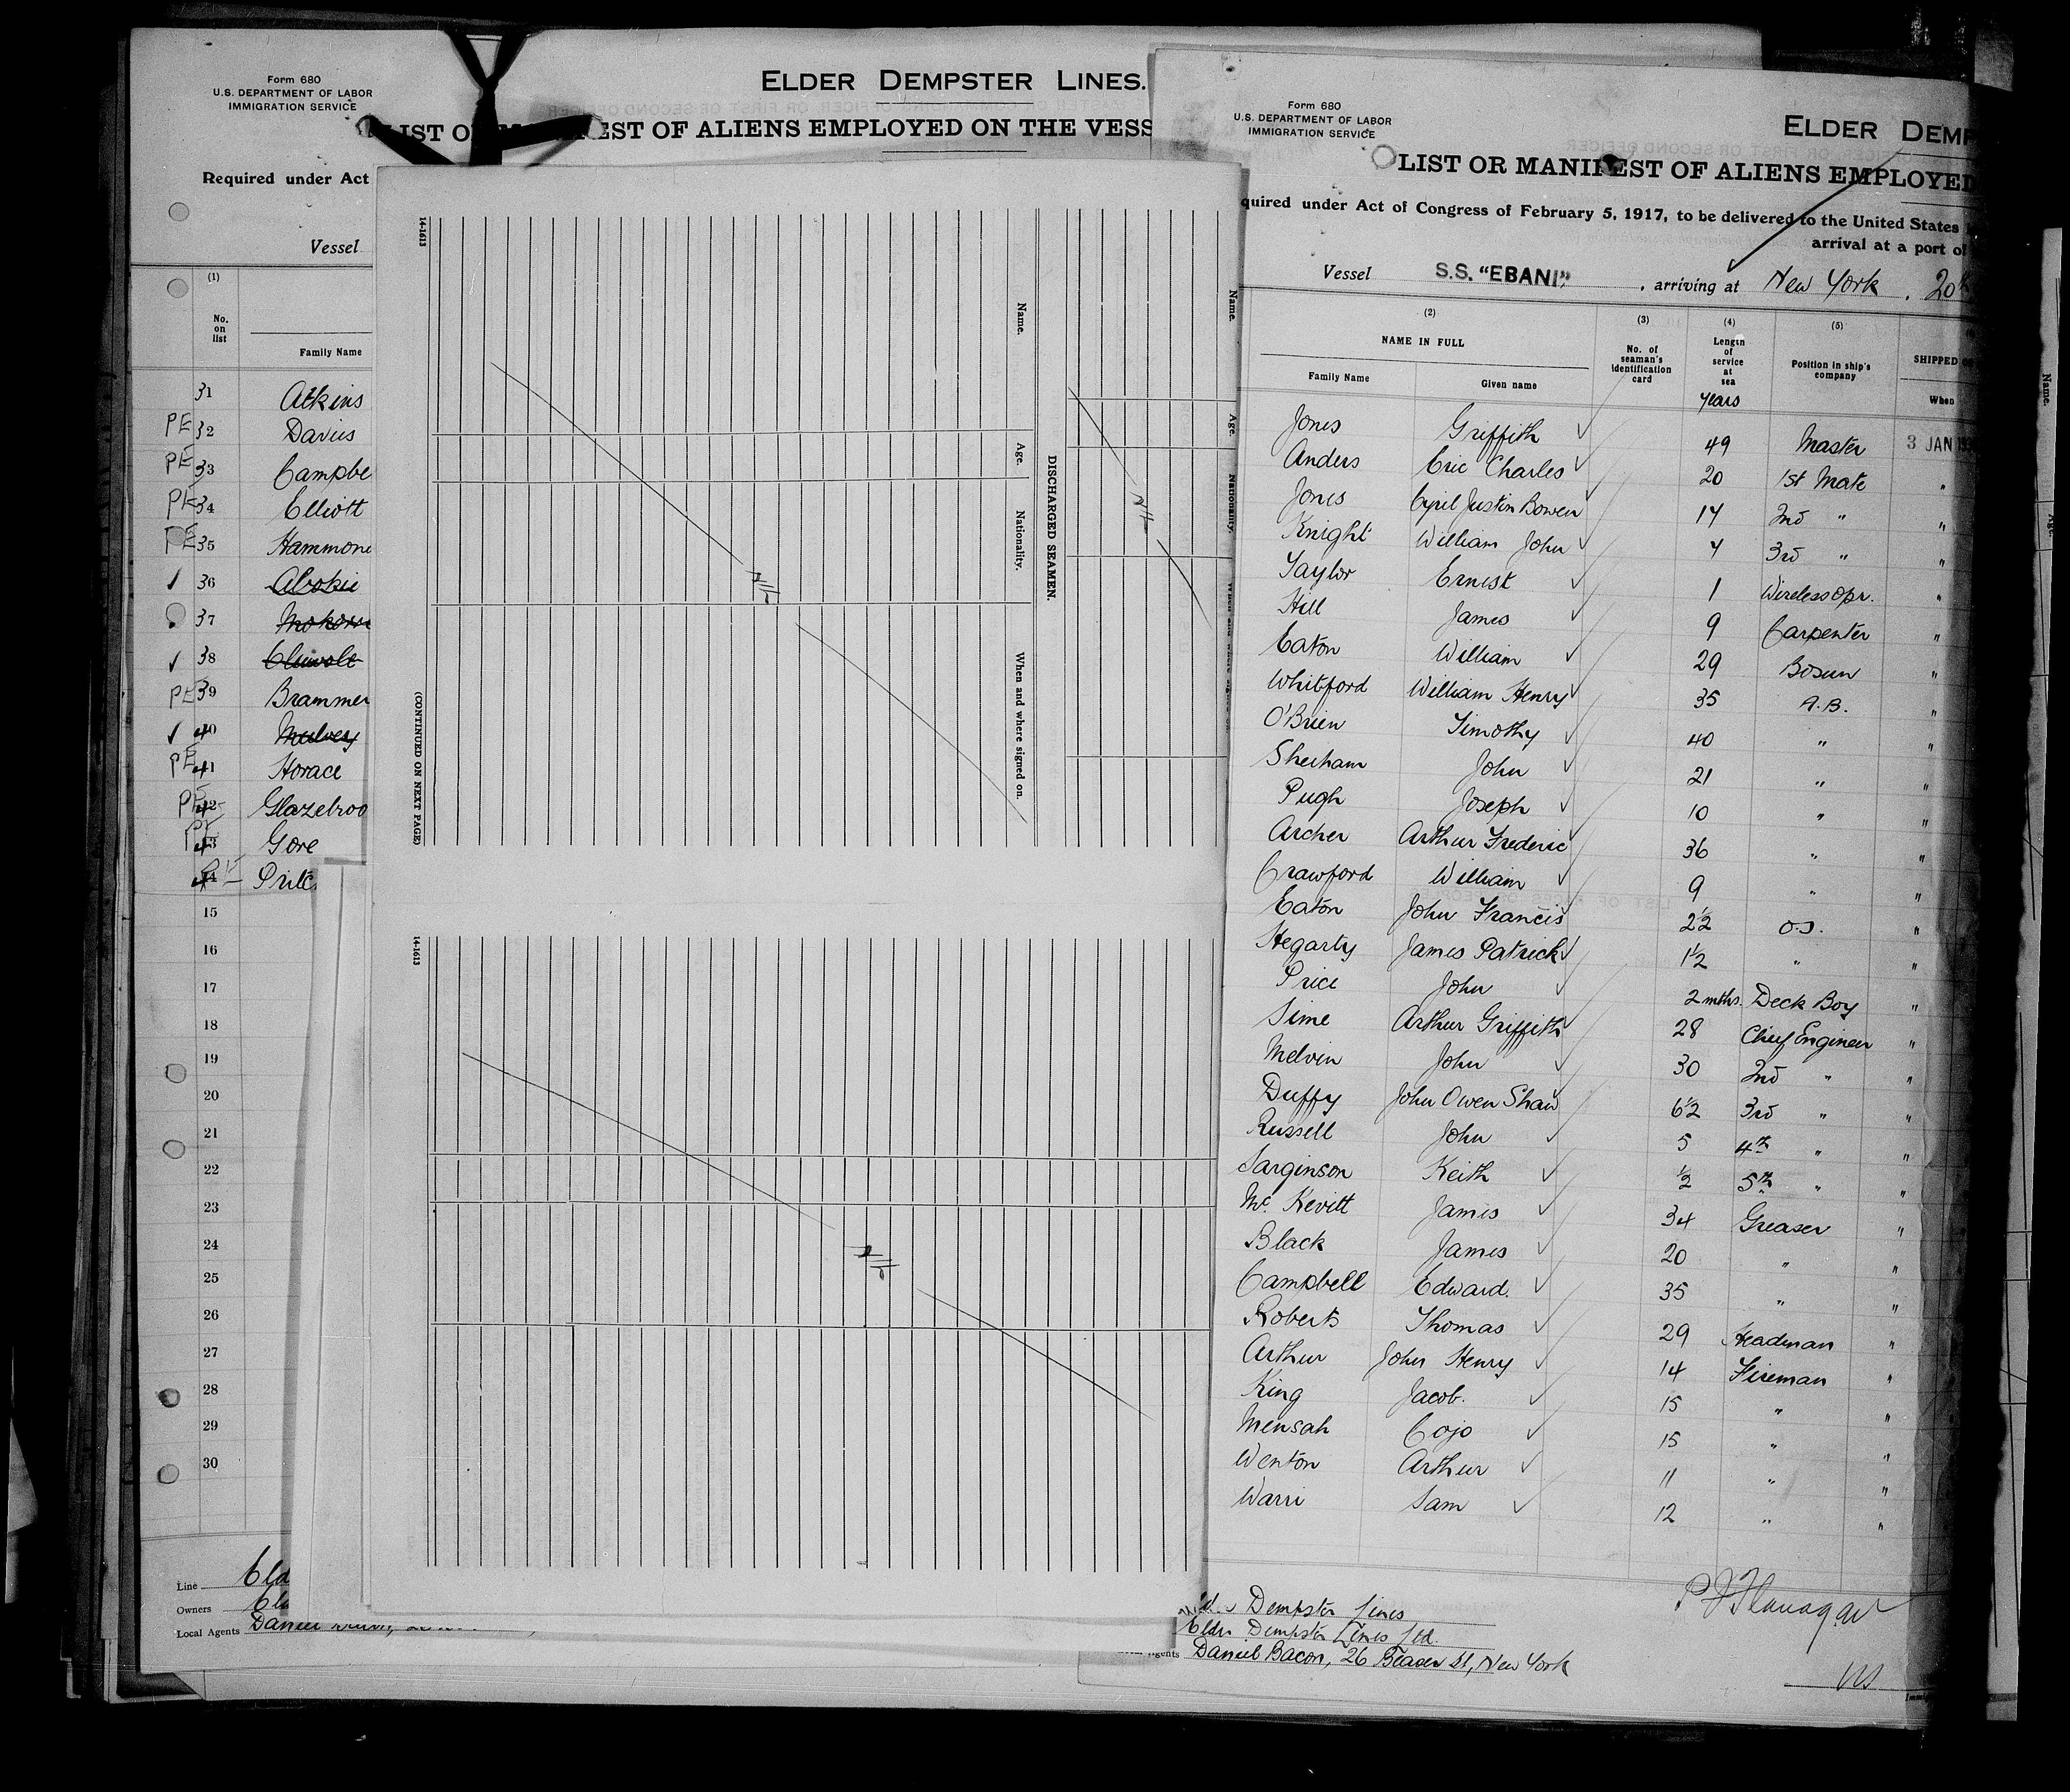 Form 680
U.S. DEPARTMENT OF LABOR
IMMIGRATION SERVICE
ELDER DEMPSTER LINES.
EST OF ALIENS EMPLOYED ON THE VESS
Required under Act
Vessel
(1)
No. on list
Family Name
31 Atkins
PE 32 Davies
PE 33 Campbe
PE 34 Elliott
PE 35 Hammond
✓ 36
37
✓ 38
PE 39 Brammer
✓ 40 Mulvey
PE 41 Horace
PE 42 Glazebroo
PE 43 Gore
PE 44 Pritc
15
16
17
18
19
20
21
22
23
24
25
26
27
28
29
30
Line Eld
Owners Eld
Local Agents Daniel
14-1613
Name.
Age.
Nationality.
When and where signed on.
DISCHARGED SEAMEN.
Name.
Age.
Nationality.
Nil
Nil
(CONTINUED ON NEXT PAGE)
14-1613
Nil
Form 680
U.S. DEPARTMENT OF LABOR
IMMIGRATION SERVICE
ELDER DEMP
LIST OR MANIFEST OF ALIENS EMPLOYED
quired under Act of Congress of February 5, 1917, to be delivered to the United States
arrival at a port of
Vessel S.S. "EBANI", arriving at New York, 20th
(2) (3) (4) (5)
NAME IN FULL
Family Name Given name
No. of seaman's identification card
Length of service at sea
Position in ship's company
SHIPPED O
When
years
Jones Griffith ✓ 49 Master 3 JAN 193
Anders Eric Charles ✓ 20 1st Mate "
Jones Cyril Justin Bowen ✓ 14 2nd " "
Knight William John ✓ 4 3rd " "
Taylor Ernest ✓ 1 Wireless Opr. "
Hill James ✓ 9 Carpenter "
Eaton William ✓ 29 Bosun "
Whitford William Henry ✓ 35 A.B. "
O'Brien Timothy ✓ 40 " "
Sheeham John ✓ 21 " "
Pugh Joseph ✓ 10 " "
Archer Arthur Frederic ✓ 36 " "
Crawford William ✓ 9 " "
Eaton John Francis ✓ 2½ O.S. "
Hegarty James Patrick ✓ 1½ " "
Price John ✓ 2 mths. Deck Boy "
Sime Arthur Griffith ✓ 28 Chief Engineer "
Melvin John ✓ 30 2nd " "
Duffy John Owen Shaw ✓ 6½ 3rd " "
Russell John ✓ 5 4th " "
Sarginson Keith ✓ ½ 5th " "
Mc Kevitt James ✓ 34 Greaser "
Black James ✓ 20 " "
Campbell Edward. ✓ 35 " "
Roberts Thomas ✓ 29 Headman "
Arthur John Henry ✓ 14 Fireman "
King Jacob. ✓ 15 " "
Mensah Cojo ✓ 15 " "
Wenton Arthur ✓ 11 " "
Warri Sam ✓ 12 " "
Dempster Lines
Elder Dempster Lines Ltd.
Agents Daniel Bacon, 26 Beaver St, New York
P J Flanagan
Name.
Age.